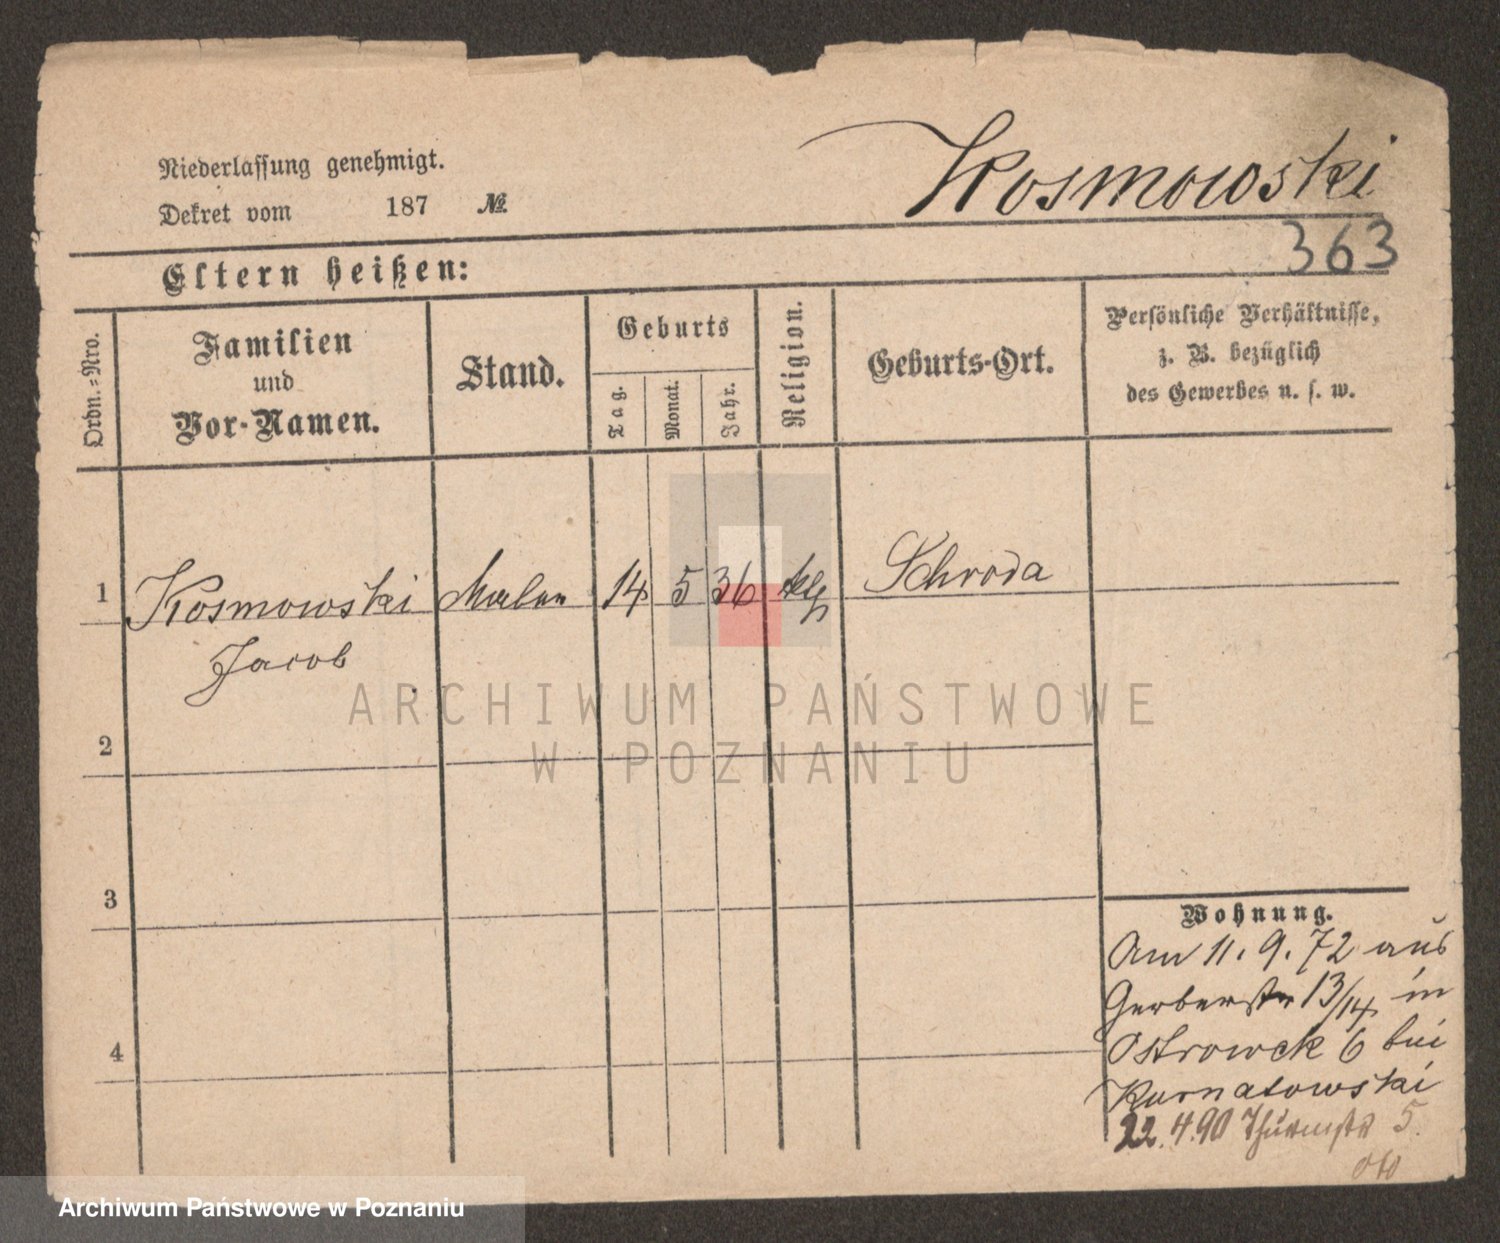 Niederlassung genehmigt.
Dekret vom 187 №
Kosmowski
363
Eltern heißen:
Ordn.=Nro.
Familien
und
Vor-Namen.
Stand.
Geburts
Tag.
Monat.
Jahr.
Religion.
Geburts-Ort.
Persönliche Verhältnisse,
z. B. bezüglich
des Gewerbes u. s. w.
1 Kosmowski Maler 14 5 36 ktl Schroda
Jacob
2
3
4
Wohnung.
Am 11. 9. 72 aus
Gerberstr 13/14 in
Ostrowek 6 bei
Kurnatowski
22.4.90 Thurmstr 5.
ARCHIWUM PAŃSTWOWE
W POZNANIU
Archiwum Państwowe w Poznaniu